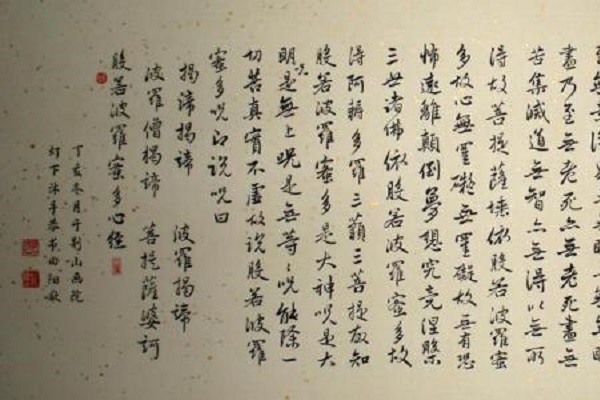 盡乃至無老死亦無老死盡無
苦集滅道無智亦無得以無所
得故菩提薩埵依般若波羅蜜
多故心無罣礙無罣礙故無有恐
怖遠離顛倒夢想究竟涅槃
三世諸佛依般若波羅蜜多故
得阿耨多羅三藐三菩提故知
般若波羅蜜多是大神呪是大
明呪是無上呪是無等々呪能除一
切苦真實不虛故說般若波羅
蜜多呪即說呪曰
揭諦揭諦 波羅揭諦
波羅僧揭諦 菩提薩婆訶
般若波羅蜜多心經
丁亥冬月于荆山画院
灯下沐手恭书曲阳